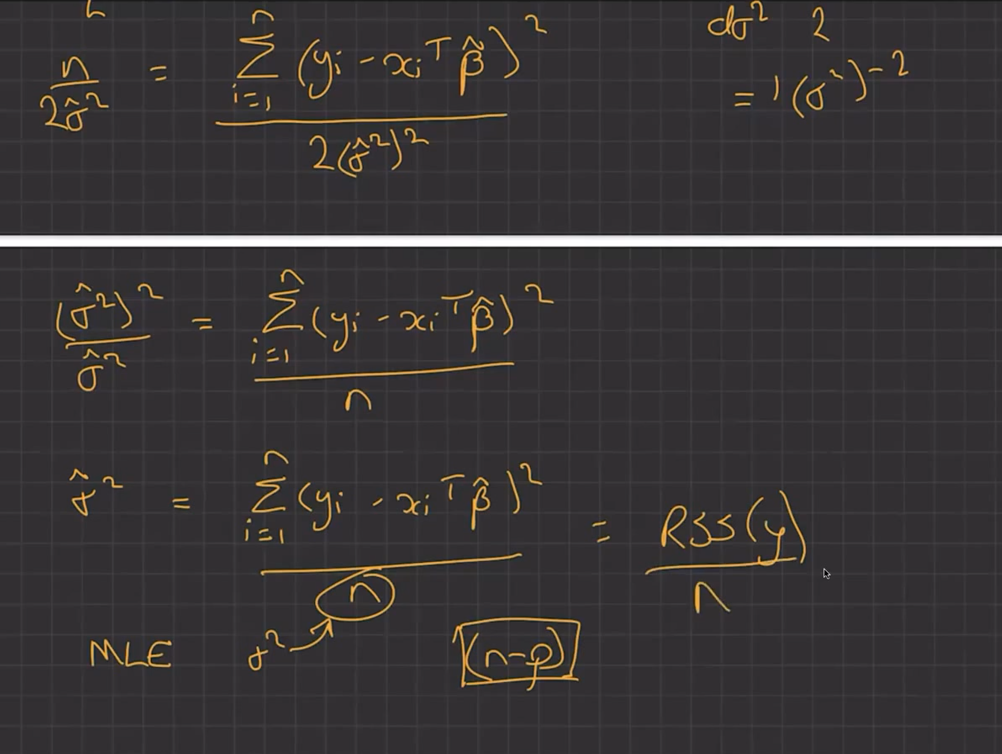 n/2σ̂² = Σ_{i=1}^{n} (yi - xiᵀ β̃)² / 2(σ̂²)²
dσ² 2
= 1(σ²)-2
(σ̂²)²/σ̂² = Σ_{i=1}^{n} (yi - xiᵀ β̂)² / n
σ̂² = Σ_{i=1}^{n} (yi - xiᵀ β̂)² / n = RSS(y)/n
MLE σ² → (n-p)